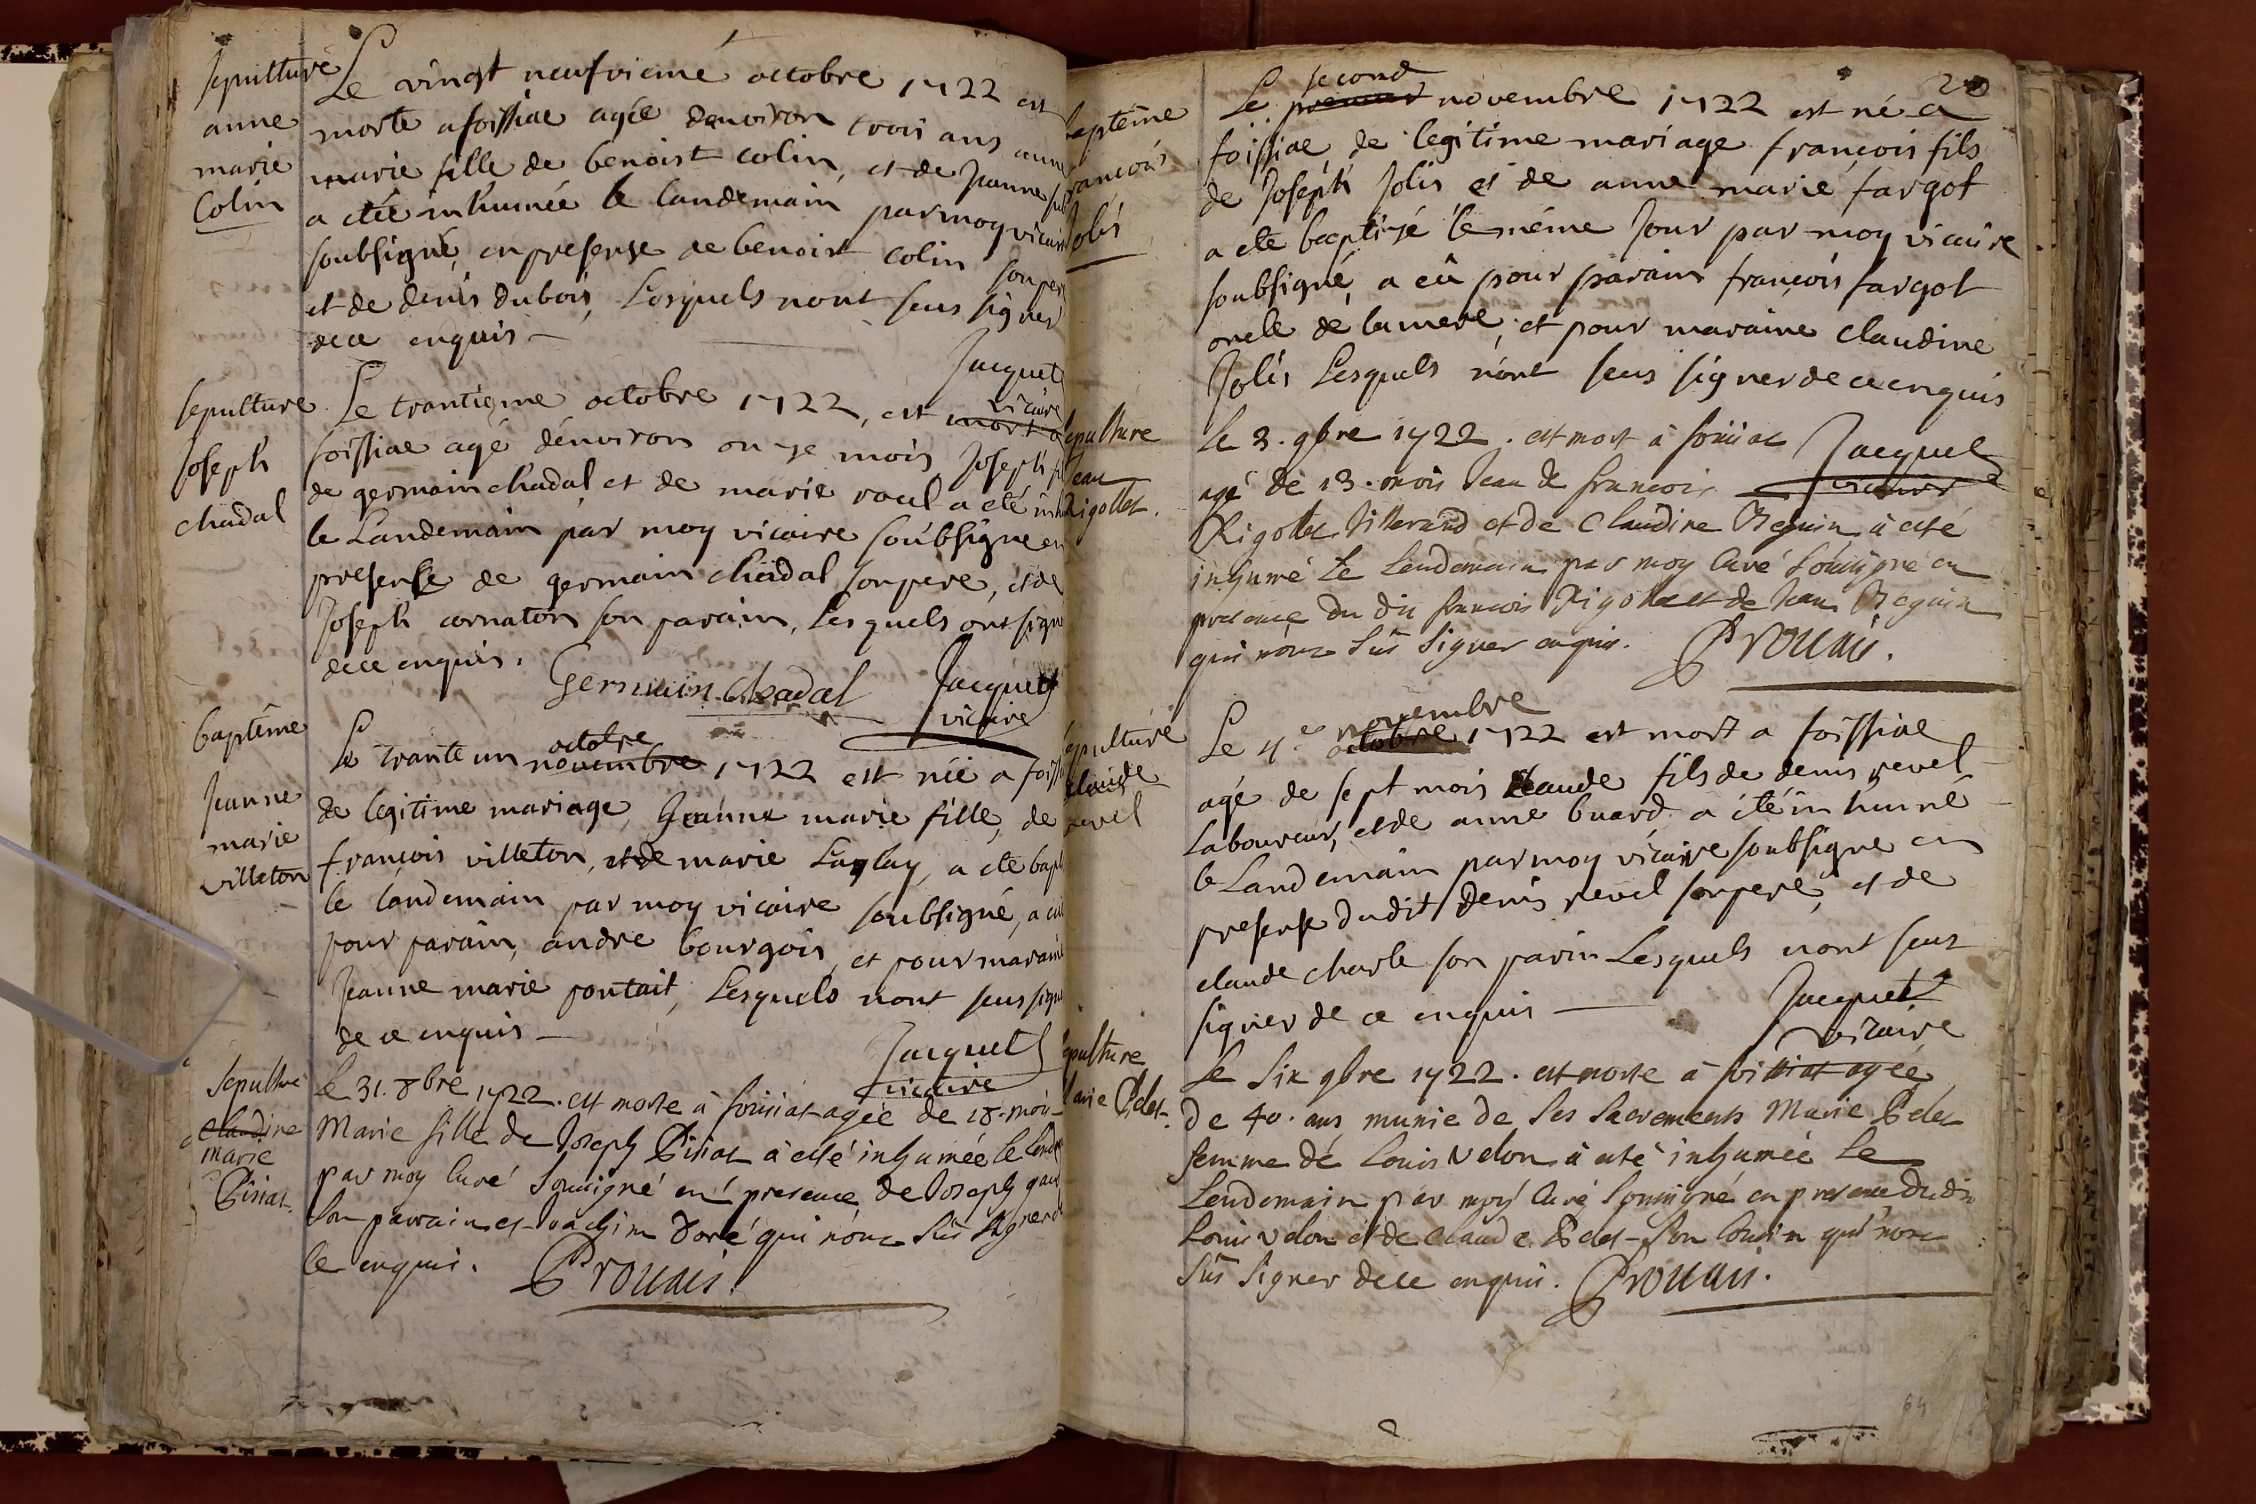 Sepulture
anne
marie
Colin
Le vingt neufvieme octobre 1722 est
morte a foissiac agée denviron trois ans anne
marie fille de benoist colin, et de Jeanne
a eté inhumée le landemain par moy vicaire
soubsigné, en presense de benoist colin son pere
et de denis dubois, Lesquels nont seus signer
de ce enquis
Jacquet
vicaire
sepulture
Joseph
chadal
Le trantieme octobre 1722, est mort a
foissiac agé denviron onze mois Joseph
de germain chadal et de marie voul a eté
le Landemain par moy vicaire soubsigne en
presense de germain chadal son pere, et de
Joseph cornaton son parain, Lesquels ont signé
de ce enquis.
Germain Chadal
Jacquet
vicaire
baptême
Jeanne
marie
villeton
Le trante un novembre octobre 1722 est née a
de legitime mariage, Jeanne marie fille, de
françois villeton, et de marie Laplay, a ete
le landemain par moy vicaire soubsigné, a eu
pour parain, andre bourgois, et pour maraine
Jeanne marie pontait, Lesquels nont seus signer
de ce enquis
Jacquet
vicaire
Sepulture
Claudine
marie
Pisiat
le 31. 8bre 1722. est morte à foissiat agée de 18. mois
Marie fille de Joseph Pisiat à esté inhumée le
par moy Curé Soussigné en presence de Joseph
Son parrain et Joachim Doré qui nont Sus Signer de
ce enquis.
Prouais.
baptême
françois
Jolis
20
Le premier second novembre 1722 est né a
foissiac, de legitime mariage françois fils
de Joseph Jolis et de anne marie fargot
a ete baptizé le même Jour par moy vicaire
soubsigné, a eû pour parain françois fargot
oncle de la mere, et pour maraine claudine
Jolis Lesquels n'ont seus signer de ce enquis
Jacquet
vicaire
sepulture
Jean
Rigollet.
le 3. 9bre 1722. est mort à foissiat
agé de 13. mois Jean de francois
Rigollet tisserand et de Claudine Reguin à esté
inhumé Le Lendemain par moy Curé Soussigné en
presence du dit francois Rigollet et de Jean Reguin
qui nont Sus Signer enquis.
Prouais.
sepulture
claude
revel
Le 4e octobre novembre 1722 est mort a foissiac
agé de sept mois claude fils de denis revel
Laboureur, et de anne buard a été inhumé
le Landemain par moy vicaire soubsigne en
presense dudit denis revel son pere, et de
claude charle son parin Lesquels nont seus
signer de ce enquis
Jacquet
vicaire
sepulture
Marie Pelet.
Le Six 9bre 1722. est morte à foissiat agée
de 40. ans munie de Ses Sacrements Marie Pelet
femme de Louis Velon à esté inhumée Le
Lendemain par moy Curé Soussigné en presence du dit
Louis Velon et de Claude Pelet Son Cousin qui nont
Sus Signer de ce enquis.
Prouais.
64